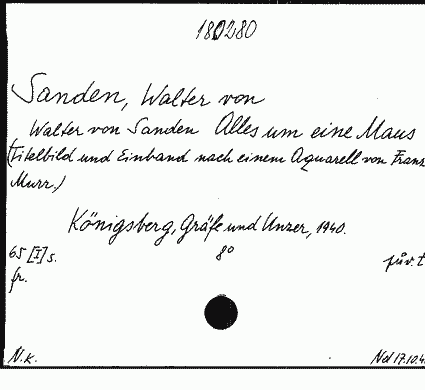 180280
Sanden, Walter von
Walter von Sanden Alles um eine Maus
(Titelbild und Einband nach einem Aquarell von Franz
Murr.)
Königsberg, Gräfe und Unzer, 1940.
65 [I] s. 8°
fr.
N.K. 17.10.4